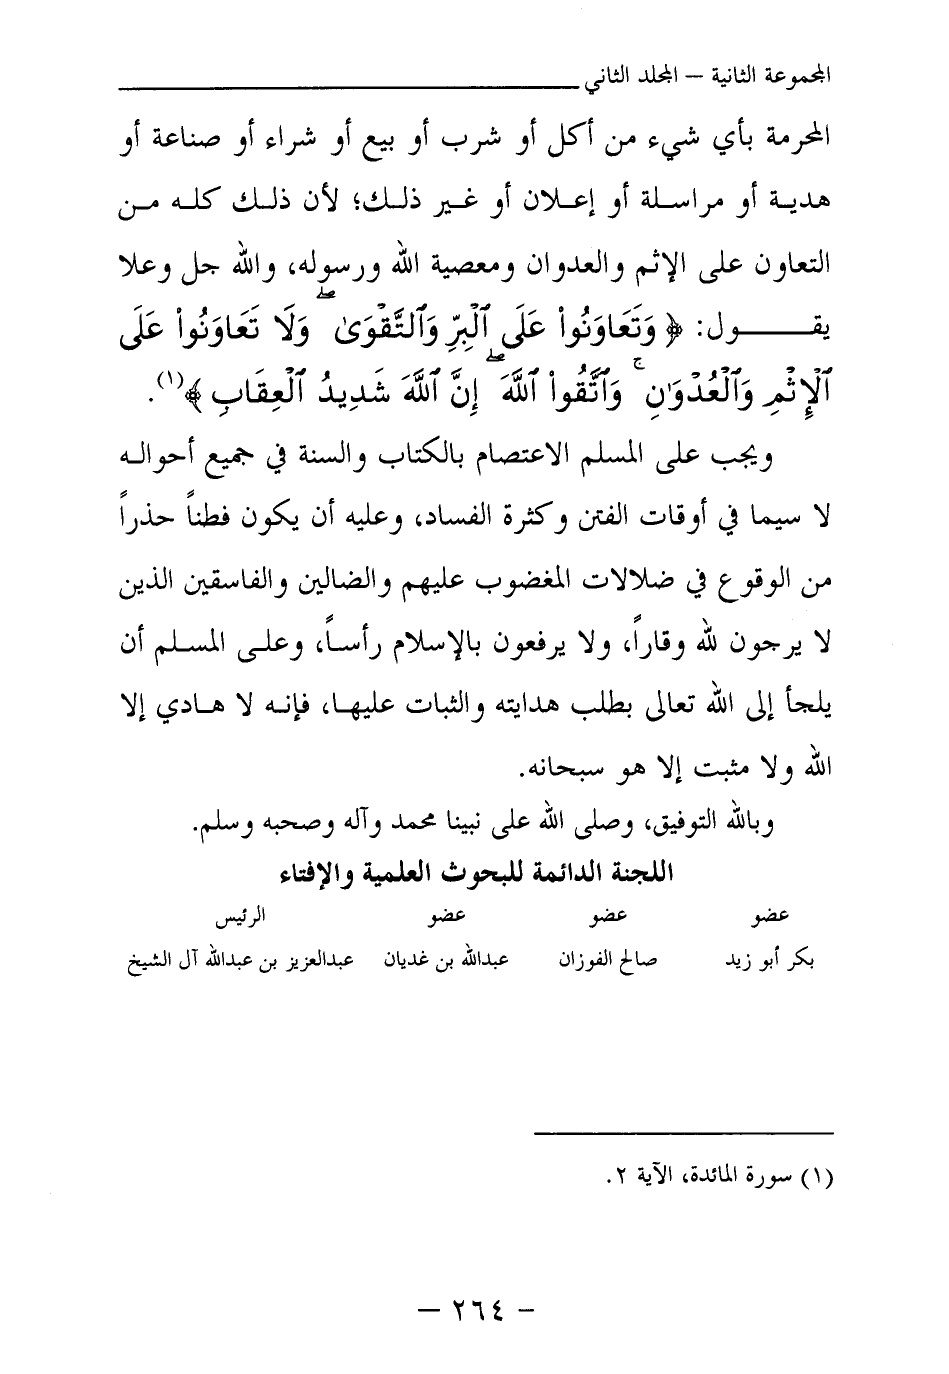 المجموعة الثانية – المجلد الثاني
المحرمة بأي شيء من أكل أو شرب أو بيع أو شراء أو صناعة أو
هدية أو مراسلة أو إعلان أو غير ذلك؛ لأن ذلك كله من
التعاون على الإثم والعدوان ومعصية الله ورسوله، والله جل وعلا
يقول: ﴿ وَتَعَاوَنُوا۟ عَلَى ٱلْبِرِّ وَٱلتَّقْوَىٰ ۖ وَلَا تَعَاوَنُوا۟ عَلَى
ٱلْإِثْمِ وَٱلْعُدْوَٰنِ ۚ وَٱتَّقُوا۟ ٱللَّهَ ۖ إِنَّ ٱللَّهَ شَدِيدُ ٱلْعِقَابِ ﴾(١).
ويجب على المسلم الاعتصام بالكتاب والسنة في جميع أحواله
لا سيما في أوقات الفتن وكثرة الفساد، وعليه أن يكون فطناً حذراً
من الوقوع في ضلالات المغضوب عليهم والضالين والفاسقين الذين
لا يرجون لله وقاراً، ولا يرفعون بالإسلام رأساً، وعلى المسلم أن
يلجأ إلى الله تعالى بطلب هدايته والثبات عليها، فإنه لا هادي إلا
الله ولا مثبت إلا هو سبحانه.
وبالله التوفيق، وصلى الله على نبينا محمد وآله وصحبه وسلم.
اللجنة الدائمة للبحوث العلمية والإفتاء
عضو عضو عضو الرئيس
بكر أبو زيد صالح الفوزان عبدالله بن غديان عبدالعزيز بن عبدالله آل الشيخ
(١) سورة المائدة، الآية ٢.
– ٢٦٤ –